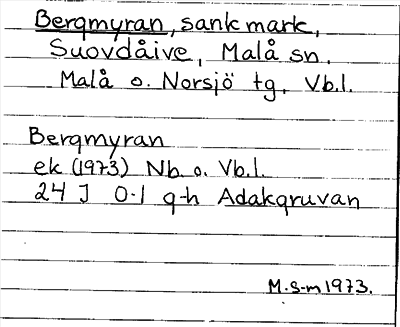 Bergmyran, sank mark,
Suovdåive, Malå sn.
Malå o. Norsjö tg, Vb.l.
Bergmyran
ek (1973) Nb. o. Vb.l.
24 J 0-1 g-h Adakgruvan
M.S-m 1973.